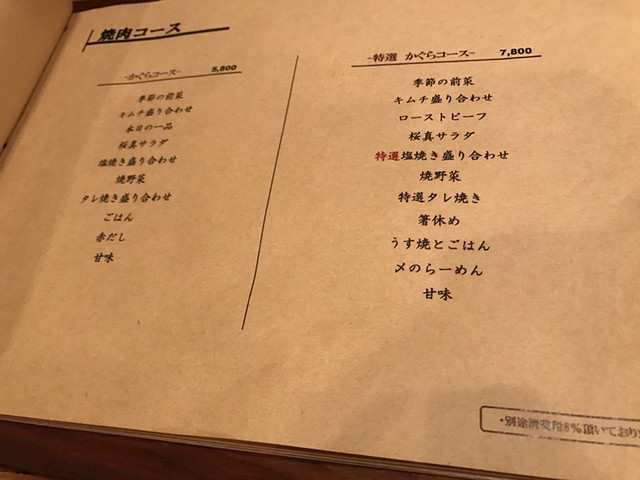 焼肉コース
-かぐらコース- 5,800
季節の前菜
キムチ盛り合わせ
本日の一品
桜真サラダ
塩焼き盛り合わせ
焼野菜
タレ焼き盛り合わせ
ごはん
赤だし
甘味
-特選 かぐらコース- 7,800
季節の前菜
キムチ盛り合わせ
ローストビーフ
桜真サラダ
特選塩焼き盛り合わせ
焼野菜
特選タレ焼き
箸休め
うす焼とごはん
〆のらーめん
甘味
・別途消費税8%頂いており